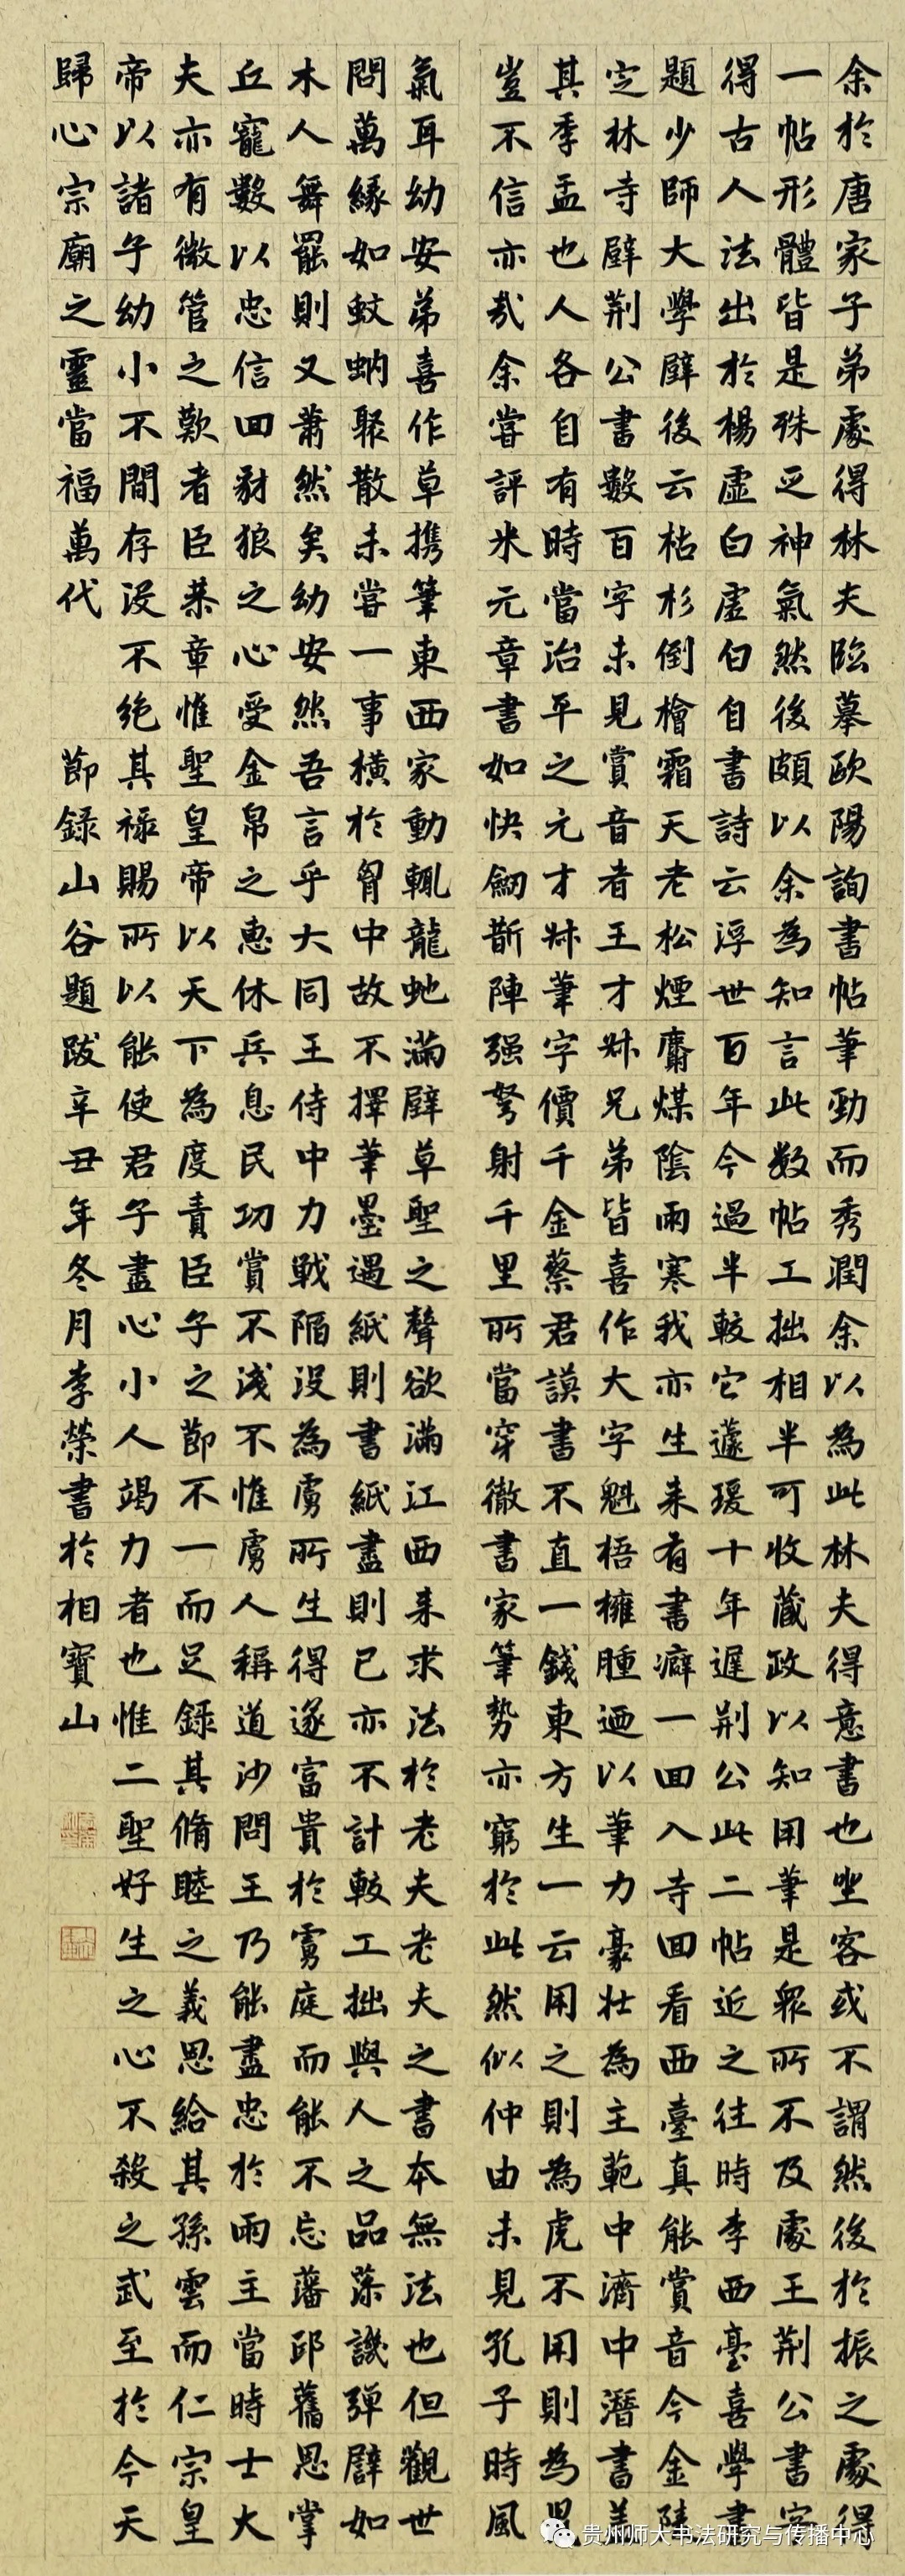 余於唐家子弟處得林夫臨摹歐陽詢書帖筆勁而秀潤余以為此林夫得意書也坐客或不謂然後於振之處得
一帖形體皆是殊乏神氣然後頗以余為知言此数帖工拙相半可收藏政以知用筆是眾所不及處王荆公書字
得古人法出於楊虛白虛白自書詩云浮世百年今過半較它蘧瑗十年遲荆公此二帖近之往時李西臺喜學書
題少師大學壁後云枯杉倒檜霜天老松煙麝煤陰雨寒我亦生来有書癖一回入寺回看西臺真能賞音今金陵
定林寺壁荆公書數百字未見賞音者王才叔兄弟皆喜作大字魁梧擁腫迺以筆力豪壯為主範中濟中潛書蓋
其季孟也人各自有時當治平之元才叔筆字價千金蔡君謨書不直一錢東方生一云用之則為虎不用則為鼠
豈不信亦哉余嘗評米元章書如快劒斫陣强弩射千里所當穿徹書家筆勢亦窮於此然似仲由未見孔子時風
氣耳幼安弟喜作草携筆東西家動輒龍虵滿壁草聖之聲欲滿江西来求法於老夫老夫之書本無法也但觀世
問萬緣如蚊蚋聚散未嘗一事橫於胷中故不擇筆墨遇紙則書紙盡則已亦不計較工拙與人之品藻譏彈譬如
木人舞罷則又蕭然矣幼安然吾言乎大同王侍中力戰陷没為虜所生得遂富貴於虜庭而能不忘藩邸舊恩掌
丘寵數以忠信回豺狼之心受金帛之惠休兵息民功賞不淺不惟虜人稱道沙問王乃能盡忠於兩主當時士大
夫亦有微管之歎者臣萊章惟聖皇帝以天下為度責臣子之節不一而足録其脩睦之義恩給其孫雲而仁宗皇
帝以諸子幼小不間存没不絶其禄賜所以能使君子盡心小人竭力者也惟二聖好生之心不殺之武至於今天
歸心宗廟之靈當福萬代 節録山谷題跋辛丑年冬月李榮書於相寶山
贵州师大书法研究与传播中心